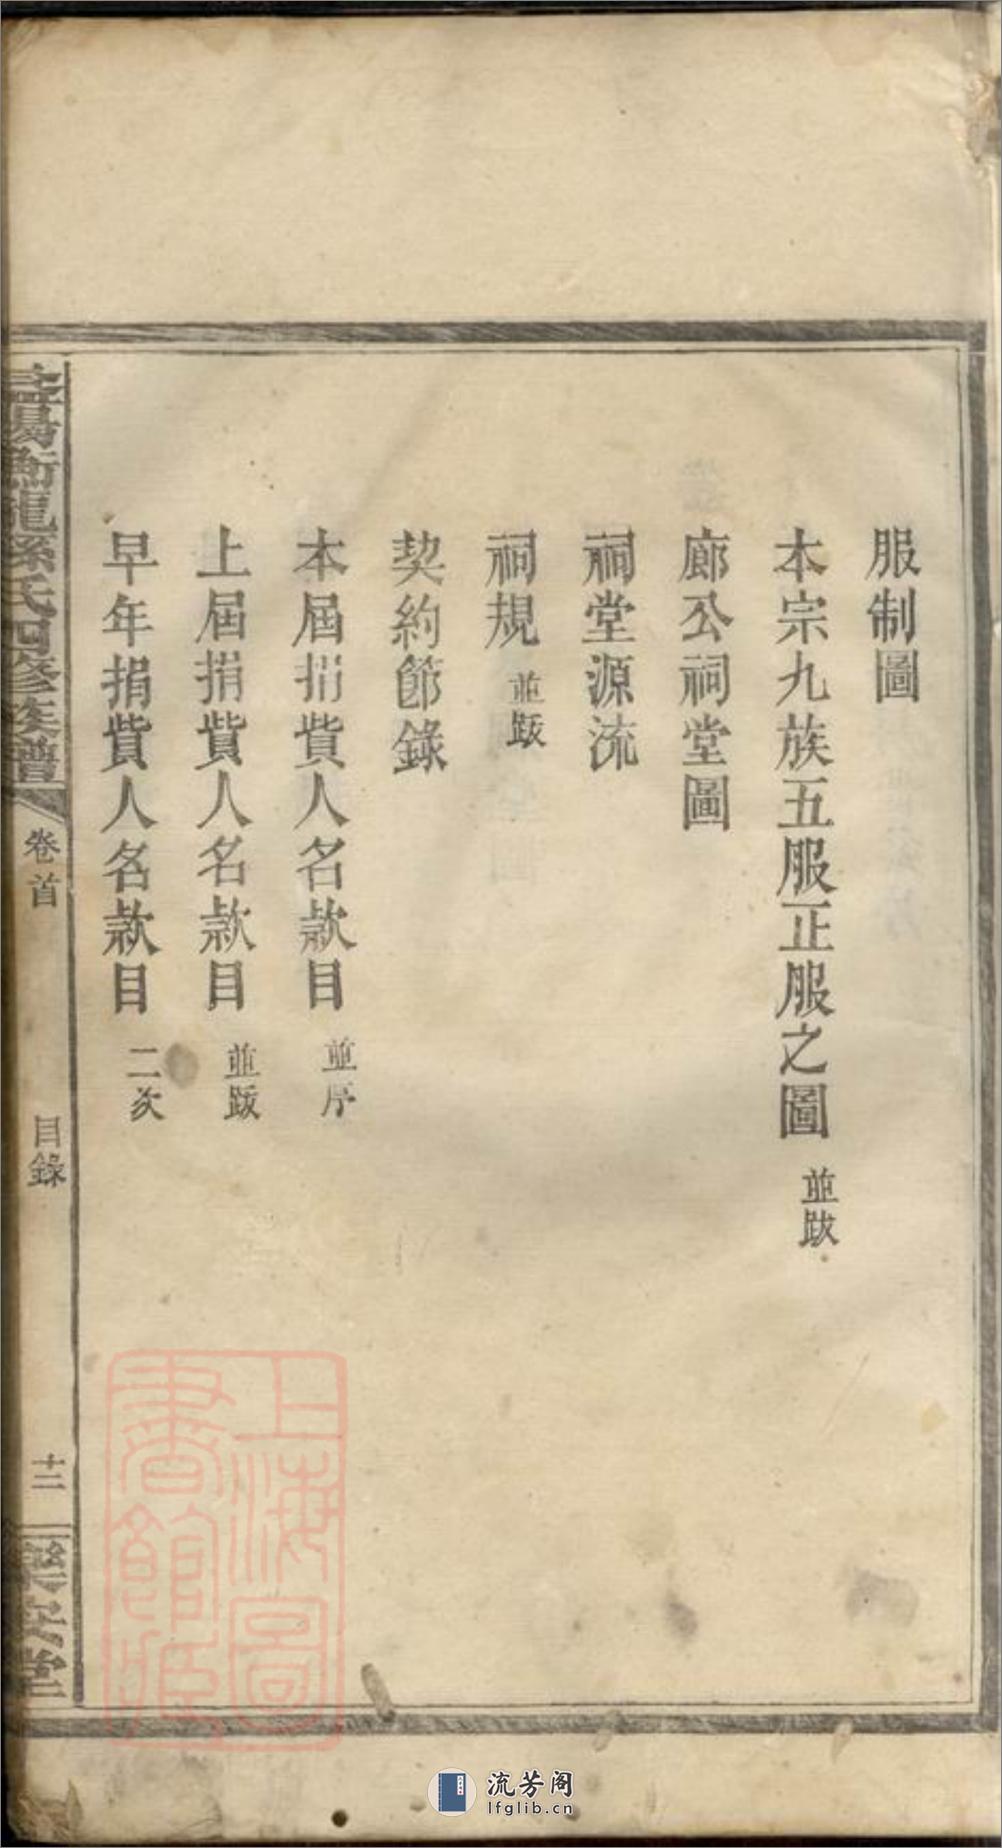 服制圖
本宗九族五服正服之圖 並跋
廊公祠堂圖
祠堂源流
祠規 並跋
契約節錄
本屆捐貲人名款目 並序
上屆捐貲人名款目 並跋
早年捐貲人名款目 二次
益陽衡龍孫氏四修族譜 卷首 目錄 十二 樂安堂
上海圖
書館藏
流芳阁
lfglib.cn